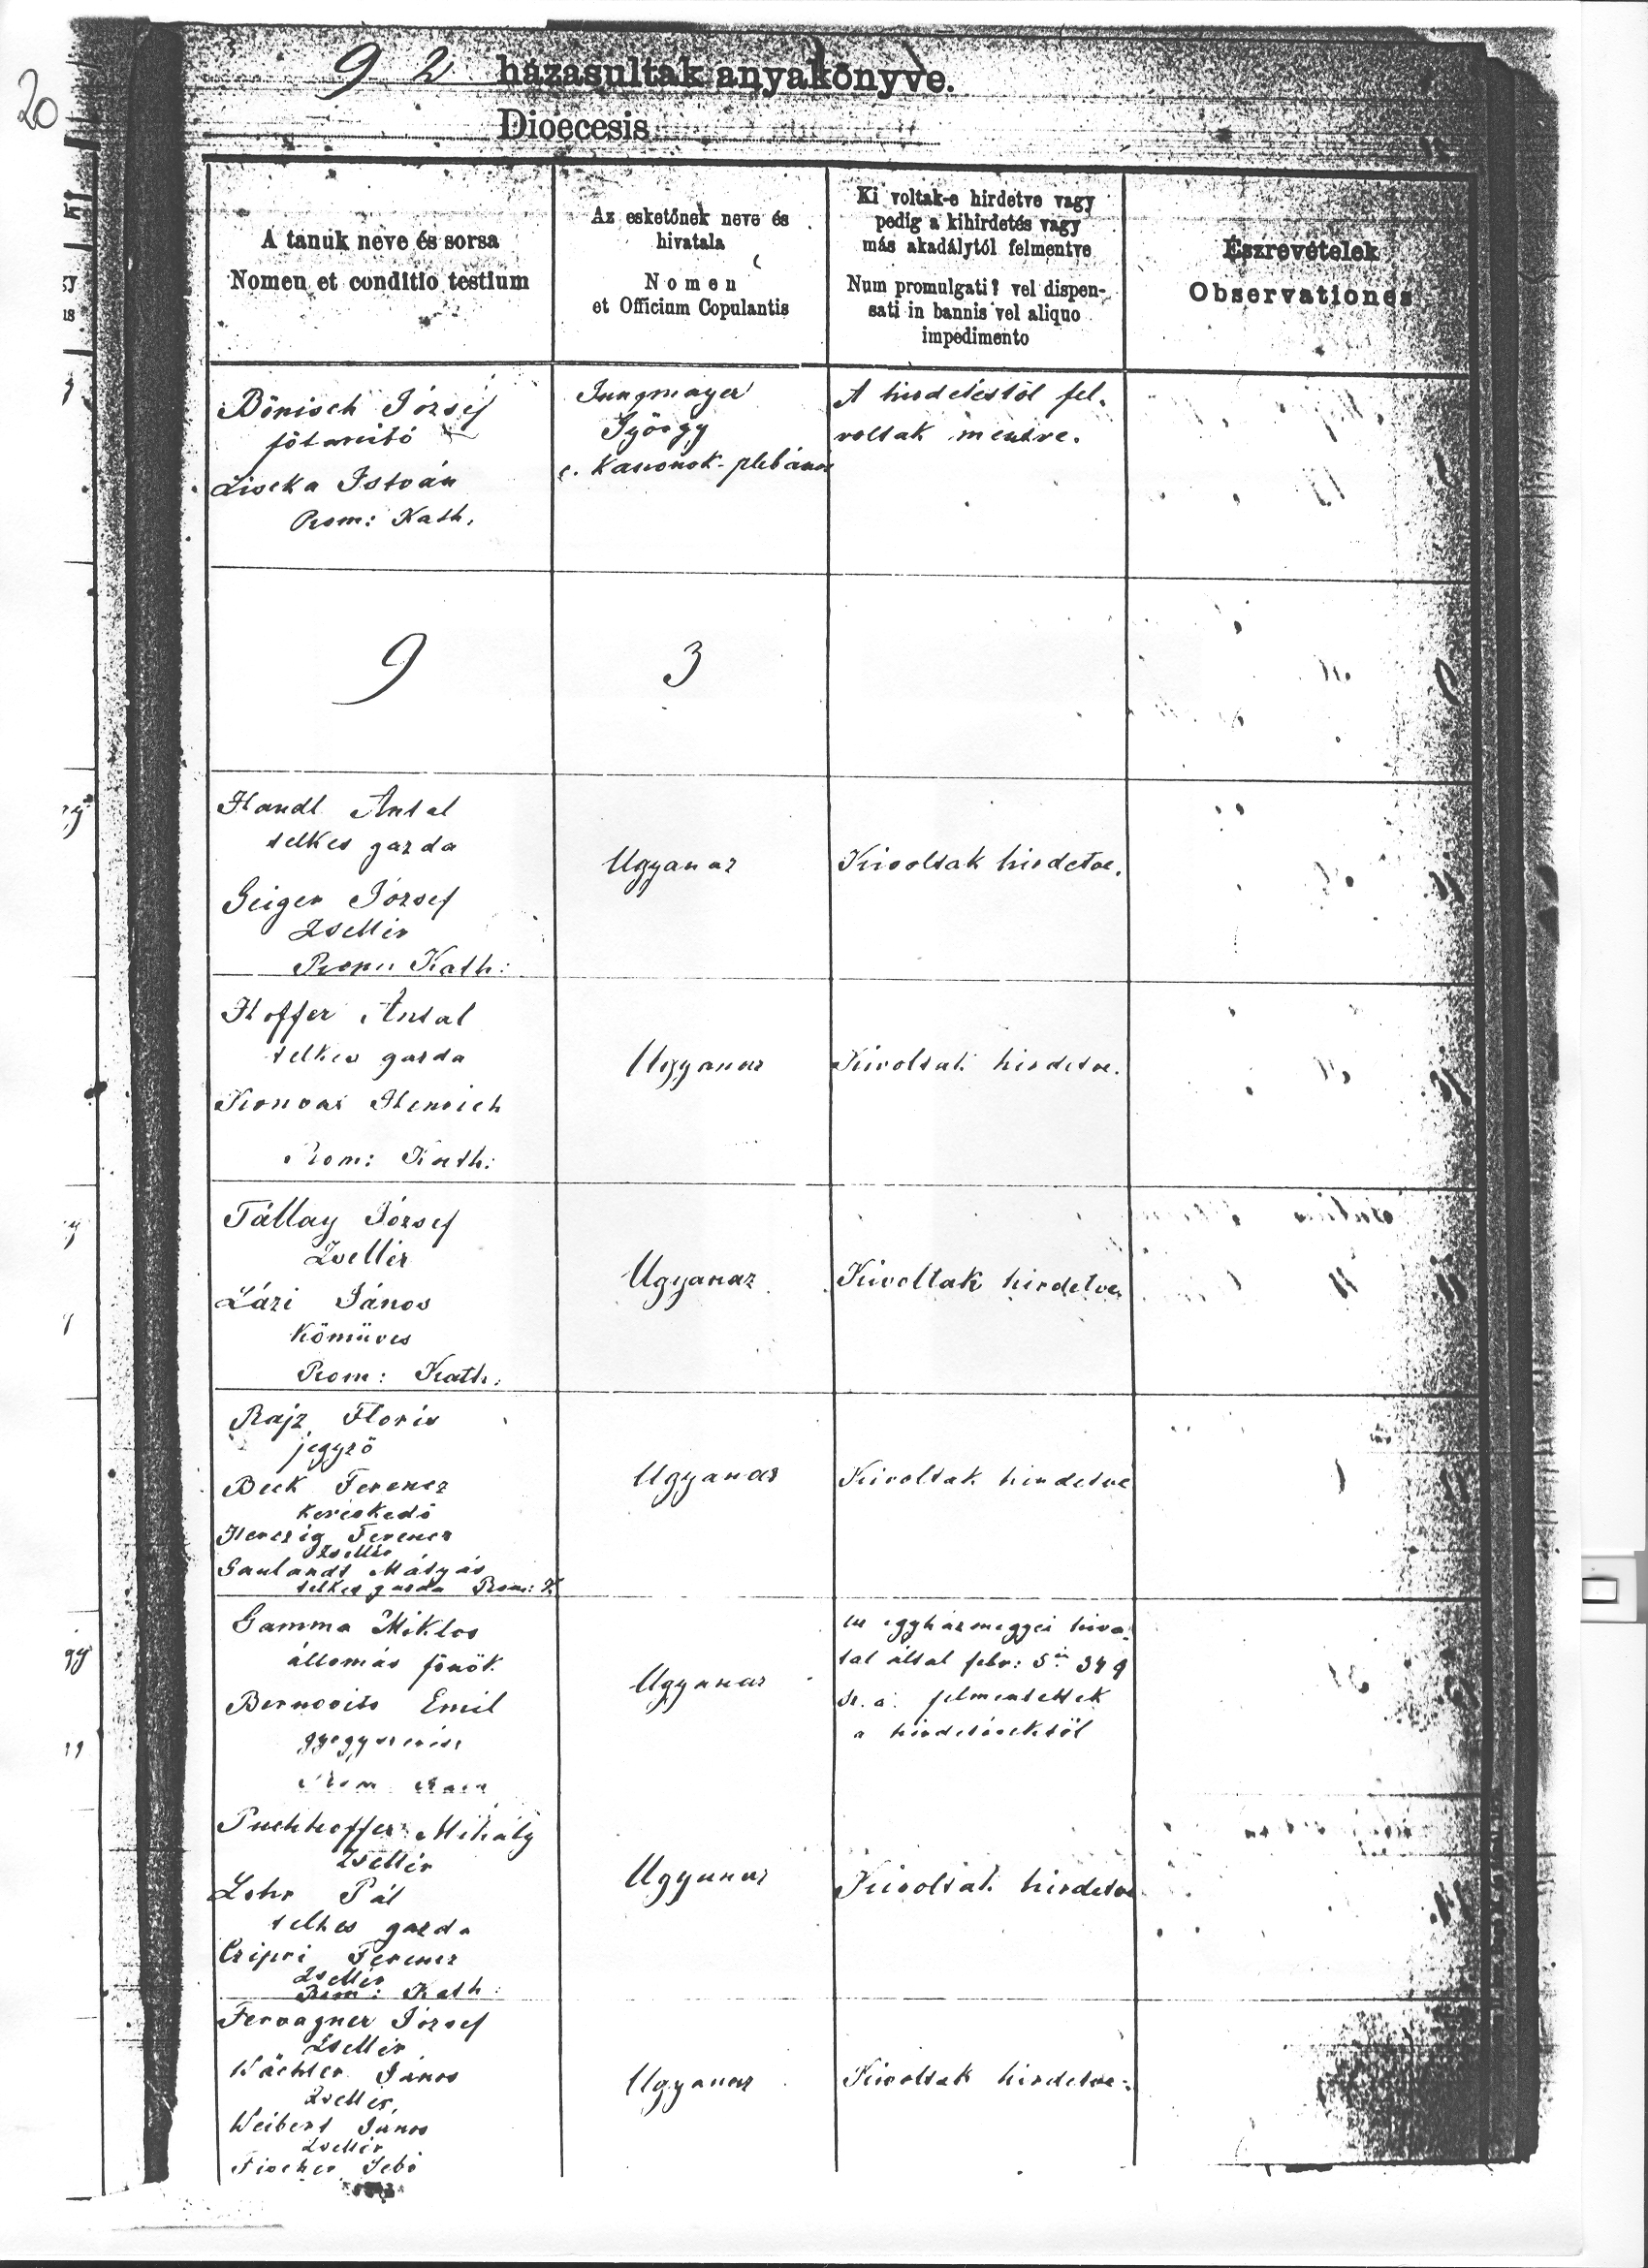 20
92 házasultak anyakönyve.
Dioecesis
A tanuk neve és sorsa
Nomen et conditio testium
Az esketőnek neve és
hivatala
Nomen
et Officium Copulantis
Ki voltak-e hirdetve vagy
pedig a kihirdetés vagy
más akadálytól felmentve
Num promulgati? vel dispen-
sati in bannis vel aliquo
impedimento
Észrevételek
Observationes
Bönisch József
főtanító
Liscka István
Rom: Kath.
Jungmayer
György
c. kanonok-plébános
A hirdetéstől fel.
voltak mentve.
9 3
Handl Antal
telkes gazda
Geiger József
Zsellér
Rom: Kath:
Ugyanaz
Kivoltak hirdetve.
Hoffer Antal
telkes gazda
Henrich
Rom: Kath:
Ugyanaz
Kivoltak hirdetve.
Tállay József
Zsellér
Lázi János
Kőmüves
Rom: Kath:
Ugyanaz
Kivoltak hirdetve
Rajz Floris
jegyző
Beck Ferencz
kereskedő
Herczig Ferencz
Zsellér
Mátyás
telkes gazda Rom: K
Ugyanaz
Kivoltak hirdetve
Gamma Miklos
állomás főnök
Emil
gyógyszerész
Rom
Ugyanaz
egyházmegyei hiva
tal által febr: 5
sz. a. felmentettek
a hirdetésektől
Puchhoffer Mihály
Zsellér
Lohr Pál
telkes gazda
Ferencz
Zsellér
Rom: Kath:
Ugyanaz
Kivoltak hirdetve
Fervagner József
Zsellér
Wächter János
Zsellér
Weibert János
Zsellér
Fischer
Ugyanaz
Kivoltak hirdetve